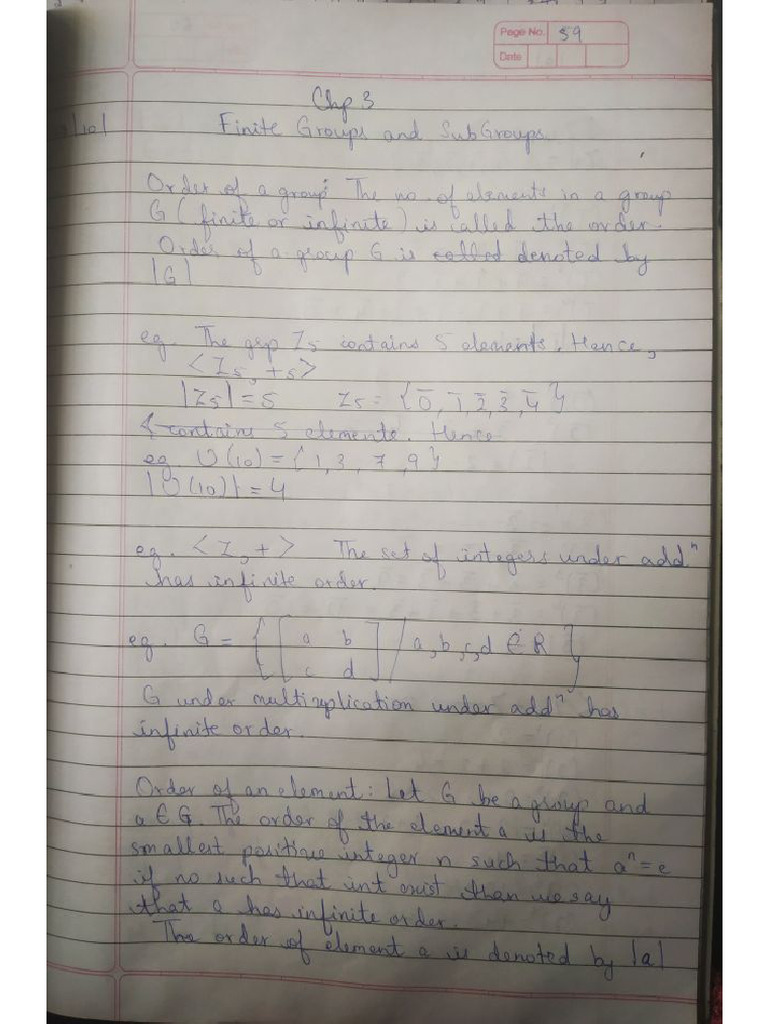 Page No. 59
Date
Chp 3
Finite Groups and SubGroups
Order of a group: The no. of elements in a group
G (finite or infinite) is called the order.
Order of a group G is called denoted by
|G|
eg. The grp Z5 contains 5 elements. Hence,
<Z5, +5>
|Z5| = 5 Z5 = {0̅, 1̅, 2̅, 3̅, 4̅}
contains 5 elements. Hence
eg. U(10) = {1, 3, 7, 9}
|U(10)| = 4
eg. <Z, +> The set of integers under addⁿ
has infinite order.
eg. G = { [ a b
c d ] / a, b, c, d ∈ R }
G under multiplication under addⁿ has
infinite order.
Order of an element: Let G be a group and
a ∈ G. The order of the element a is the
smallest positive integer n such that aⁿ = e
if no such that int exist than we say
that a has infinite order.
The order of element a is denoted by |a|